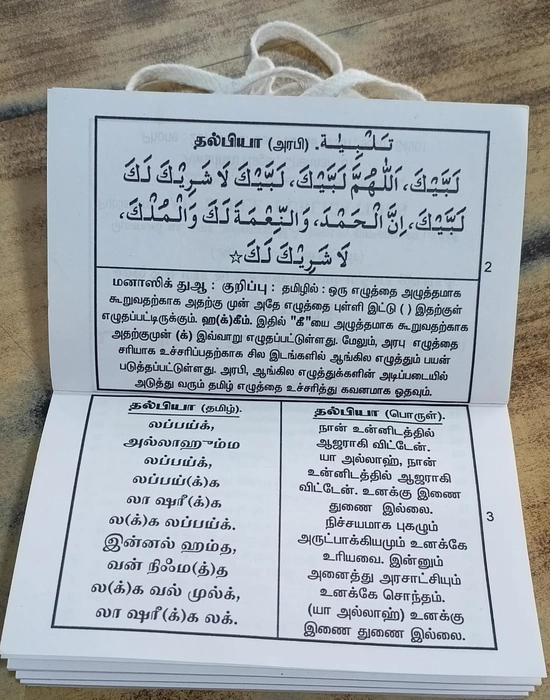 தல்பியா (அரபி). تَلْبِيَة
لَبَّيْكَ، اَللّٰهُمَّ لَبَّيْكَ، لَبَّيْكَ لَا شَرِيْكَ لَكَ
لَبَّيْكَ، اِنَّ الْحَمْدَ، وَالنِّعْمَةَ لَكَ وَالْمُلْكَ،
لَا شَرِيْكَ لَكَ☆
2
மனாஸிக் துஆ : குறிப்பு : தமிழில் : ஒரு எழுத்தை அழுத்தமாக
கூறுவதற்காக அதற்கு முன் அதே எழுத்தை புள்ளி இட்டு ( ) இதற்குள்
எழுதப்பட்டிருக்கும். ஹ(க்)கீம். இதில் "கீ"யை அழுத்தமாக கூறுவதற்காக
அதற்குமுன் (க்) இவ்வாறு எழுதப்பட்டுள்ளது. மேலும், அரபு எழுத்தை
சரியாக உச்சரிப்பதற்காக சில இடங்களில் ஆங்கில எழுத்தும் பயன்
படுத்தப்பட்டுள்ளது. அரபி, ஆங்கில எழுத்துக்களின் அடிப்படையில்
அடுத்து வரும் தமிழ் எழுத்தை உச்சரித்து கவனமாக ஓதவும்.
தல்பியா (தமிழ்).
லப்பய்க்,
அல்லாஹும்ம
லப்பய்க்,
லப்பய்(க்)க
லா ஷரீ(க்)க
ல(க்)க லப்பய்க்.
இன்னல் ஹம்த,
வன் நிஃம(த்)த
ல(க்)க வல் முல்க்,
லா ஷரீ(க்)க லக்.
தல்பியா (பொருள்).
நான் உன்னிடத்தில்
ஆஜராகி விட்டேன்.
யா அல்லாஹ், நான்
உன்னிடத்தில் ஆஜராகி
விட்டேன். உனக்கு இணை
துணை இல்லை.
நிச்சயமாக புகழும்
அருட்பாக்கியமும் உனக்கே
உரியவை. இன்னும்
அனைத்து அரசாட்சியும்
உனக்கே சொந்தம்.
(யா அல்லாஹ்) உனக்கு
இணை துணை இல்லை.
3